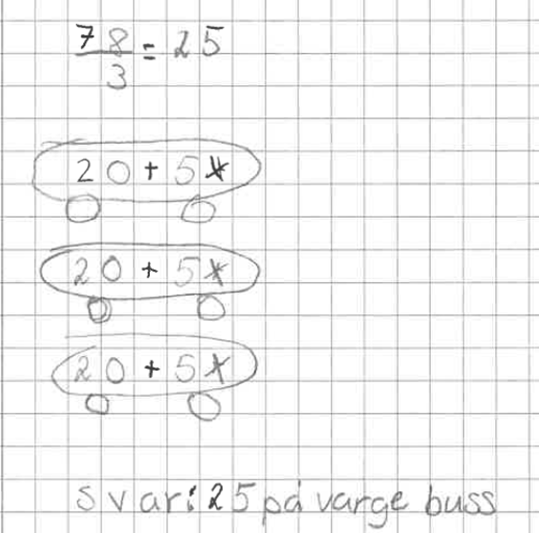 78/3 = 25
20 + 5*
20 + 5*
20 + 5*
svar: 25 på varge buss